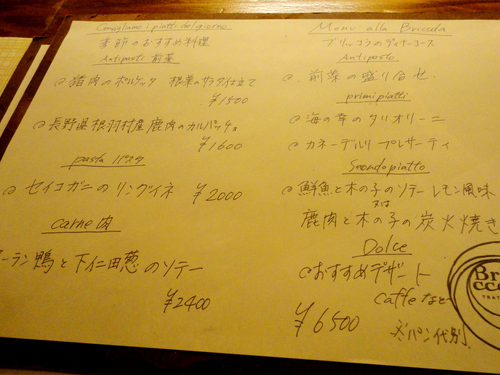 Consigliamo i piatti del giorno
季節のおすすめ料理
Antipasti 前菜
猪肉のポルケッタ 根菜のサラダ仕立て
¥1500
長野県根羽村産 鹿肉のカルパッチョ
¥1600
pasta パスタ
セイコガニのリングイネ ¥2000
carne 肉
ーラン鴨と下仁田葱のソテー
¥2400
Menu alla Briccola
ブリッコラのディナーコース
Antipasto
前菜の盛り合せ
primi piatti
海の幸のタリオリーニ
カネーデルリ
Secondo piatto
鮮魚と木の子のソテー レモン風味
又は
鹿肉と木の子の炭火焼き
Dolce
おすすめデザート
Caffe など
¥6500
※パン代別
Bri
cco